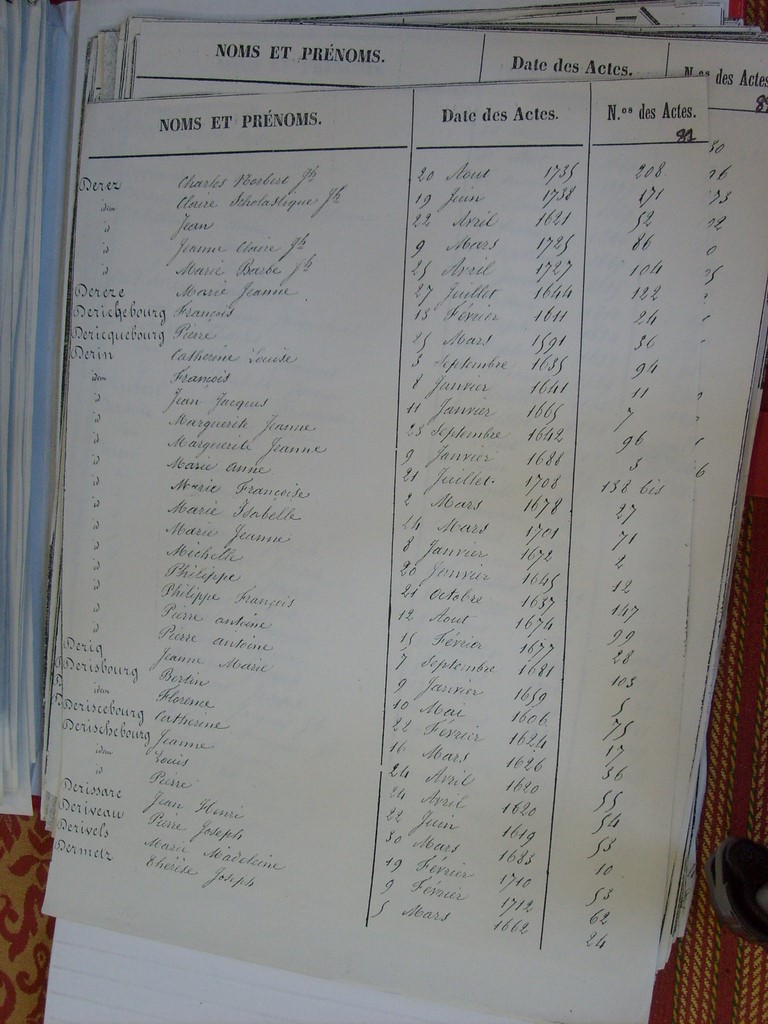 NOMS ET PRÉNOMS. Date des Actes. N.os des Actes.
NOMS ET PRÉNOMS. Date des Actes. N.os des Actes.
81
Derez Charles Norbert Jh 20 Aout 1735 208
idem Claire Scholastique Jh 19 Juin 1738 171
id Jean 22 Avril 1621 52
id Jeanne Claire Jh 9 Mars 1725 86
id Marie Barbe Jh 25 Avril 1727 104
Dereze Marie Jeanne 27 Juillet 1644 122
Derichebourg François 13 Février 1611 24
Dericquebourg Pierre 25 Mars 1591 36
Derin Catherine Louise 3 Septembre 1635 94
idem François 8 Janvier 1641 11
id Jean Jacques 11 Janvier 1665 7
id Marguerite Jeanne 23 Septembre 1642 96
id Marguerite Jeanne 9 Janvier 1688 3
id Marie anne 21 Juillet 1708 138 bis
id Marie Françoise 2 Mars 1678 27
id Marie Isabelle 24 Mars 1701 71
id Marie Jeanne 8 Janvier 1672 2
id Michelle 20 Janvier 1645 12
id Philippe 21 octobre 1637 147
id Philippe François 12 Aout 1674 99
id Pierre antoine 15 Février 1677 28
id Pierre antoine 7 Septembre 1681 103
Deriq Jeanne Marie 9 Janvier 1659 5
Derisbourg Bertin 10 Mai 1606 75
idem Florence 22 Février 1624 17
Deriscebourg Catherine 16 Mars 1626 36
Derischebourg Jeanne 24 Avril 1620 55
idem Louis 24 Avril 1620 54
id Pierre 22 Juin 1619 53
Derissare Jean Henri 30 Mars 1683 10
Deriveau Pierre Joseph 19 Février 1710 53
Derivels Marie Madeleine 9 Février 1712 62
Dermetz Thérèse Joseph 5 Mars 1662 24